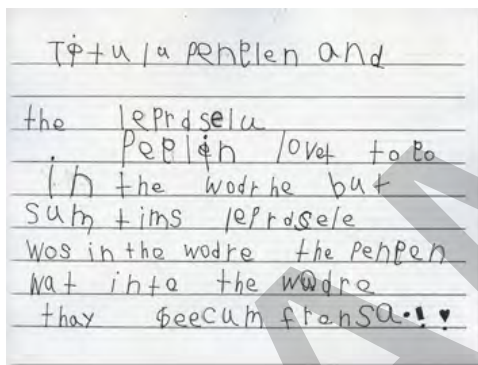 Titula penplen and
the leprdselu
Peplen lovet to go
in the wodrhe but
sum tims leprdsele
wos in the wodre the penpen
wat inte the wodre
thay beecum frensa.!♥